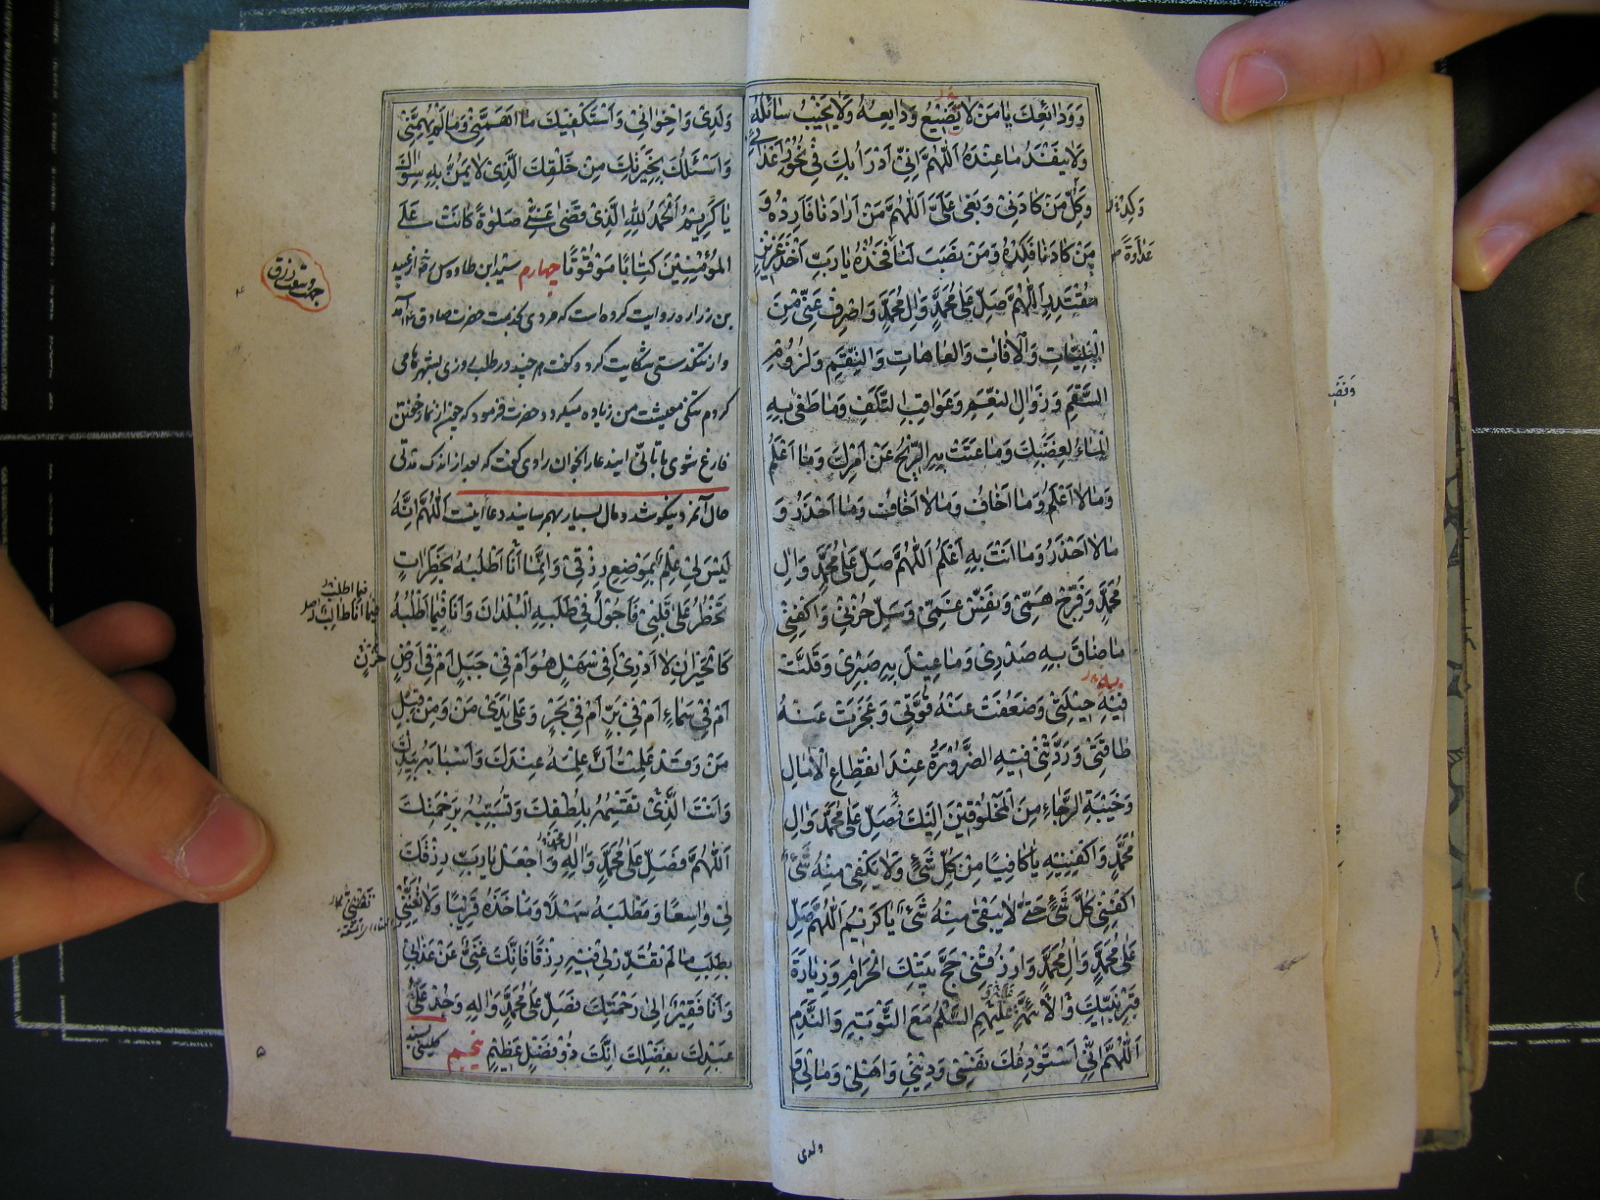 وَوَدائِعِكَ يا مَنْ لا يُضَيِّعُ وَدايِعَهُ وَلا يُخَيِّبُ سائِلَهُ
وَلا يَنْفَدُ ما عِنْدَهُ اَللّهُمَّ اِنّي اَدْرَأُ بِكَ في نُحُورِ اَعْدائي
وَكُلِّ مَنْ كادَني وَبَغى عَلَيَّ اَللّهُمَّ مَنْ اَرادَنا فَاَرِدْهُ وَ
مَنْ كادَنا فَكِدْهُ وَمَنْ نَصَبَ لَنا فَخُذْهُ يا رَبِّ اَخْذَ عَزيزٍ
مُقْتَدِرٍ اَللّهُمَّ صَلِّ عَلى مُحَمَّدٍ وَالِ مُحَمَّدٍ وَاصْرِفْ عَنّي مِنَ
الْبَلِيّاتِ وَالْافاتِ وَالْعاهاتِ وَالنِّقَمِ وَلُزُومِ
السَّقَمِ وَزَوالِ النِّعَمِ وَعَواقِبِ التَّلَفِ وَما طَغى بِهِ
الْماءُ لِغَضَبِكَ وَما عَتَتْ بِهِ الرّيحُ عَنْ اَمْرِكَ وَما اَعْلَمُ
وَما لا اَعْلَمُ وَما اَخافُ وَما لا اَخافُ وَما اَحْذَرُ وَ
ما لا اَحْذَرُ وَما اَنْتَ بِهِ اَعْلَمُ اَللّهُمَّ صَلِّ عَلى مُحَمَّدٍ وَالِ
مُحَمَّدٍ وَفَرِّجْ هَمّي وَنَفِّسْ غَمّي وَسَلِّ حُزْني وَاكْفِني
ما ضاقَ بِهِ صَدْري وَما عيلَ بِهِ صَبْري وَقَلَّتْ
فيهِ حيلَتي وَضَعُفَتْ عَنْهُ قُوَّتي وَعَجَزَتْ عَنْهُ
طاقَتي وَرَدَّتْني فيهِ الضَّرُورَةُ عِنْدَ انْقِطاعِ الْامالِ
وَخَيْبَةِ الرَّجاءِ مِنَ الْمَخْلُوقينَ اِلَيْكَ فَصَلِّ عَلى مُحَمَّدٍ وَالِ
مُحَمَّدٍ وَاكْفِنيهِ يا كافِيًا مِنْ كُلِّ شَيْءٍ وَلا يَكْفي مِنْهُ شَيْءٌ
اكْفِني كُلَّ شَيْءٍ حَتّى لا يَبْقى مِنْهُ شَيْءٌ يا كَريمُ اَللّهُمَّ صَلِّ
عَلى مُحَمَّدٍ وَالِ مُحَمَّدٍ وَارْزُقْني حَجَّ بَيْتِكَ الْحَرامِ وَزِيارَةَ
قَبْرِ نَبِيِّكَ وَالْاَئِمَّةِ عَلَيْهِمُ السَّلامُ مَعَ التَّوْبَةِ وَالنَّدَمِ
اَللّهُمَّ اِنّي اَسْتَوْدِعُكَ نَفْسي وَديني وَاَهْلي وَمالي وَ
ولدى
وَلَدي وَاِخْواني وَاَسْتَكْفيكَ ما اَهَمَّني وَما لَمْ يُهِمَّني
وَاَسْئَلُكَ بِخِيَرَتِكَ مِنْ خَلْقِكَ الَّذي لا يَمُنُّ بِهِ سِواكَ
يا كَريمُ اَلْحَمْدُ لِلّهِ الَّذي قَضى عَنّي صَلوةً كانَتْ عَلَى
الْمُؤْمِنينَ كِتابًا مَوْقُوتًا چهارم سيد ابن طاوس رحمه از عبيد
بن زراره روايت كرده است كه مردى بخدمت حضرت صادق ع آمد
واز تنكدستى شكايت كرد وكفت هرچند در طلب روزى بشهرها مى
كردم تنكى معيشت من زياده ميكردد حضرت فرمود كه چون از نماز خفتن
فارغ شوى با تأنى ايندعا را بخوان راوى كفت كه بعد از اندك مدتى
حال آنمرد نيكو شد ومال بسيار بهم رسانيد دعا اينست اَللّهُمَّ اِنَّهُ
لَيْسَ لي عِلْمٌ بِمَوْضِعِ رِزْقي وَاِنَّما اَنَا اَطْلُبُهُ بِخَطَراتٍ
تَخْطُرُ عَلى قَلْبي فَاَجُولُ في طَلَبِهِ الْبُلْدانَ وَاَنَا فيما اَطْلُبُهُ
كَالْحَيْرانِ لا اَدْري اَفي سَهْلٍ هُوَ اَمْ في جَبَلٍ اَمْ في اَرْضٍ
اَمْ في سَماءٍ اَمْ في بَرٍّ اَمْ في بَحْرٍ وَعَلى يَدَيْ مَنْ وَمِنْ قِبَلِ
مَنْ وَقَدْ عَلِمْتُ اَنَّ عِلْمَهُ عِنْدَكَ وَاَسْبابَهُ بِيَدِكَ
وَاَنْتَ الَّذي تَقْسِمُهُ بِلُطْفِكَ وَتُسَبِّبُهُ بِرَحْمَتِكَ
اَللّهُمَّ فَصَلِّ عَلى مُحَمَّدٍ وَالِهِ وَاجْعَلْ يا رَبِّ رِزْقَكَ
لي واسِعًا وَمَطْلَبَهُ سَهْلًا وَمَأْخَذَهُ قَريبًا وَلا تُعَنِّني
بِطَلَبِ ما لَمْ تُقَدِّرْ لي فيهِ رِزْقًا فَاِنَّكَ غَنِيٌّ عَنْ عَذابي
وَاَنَا فَقيرٌ اِلى رَحْمَتِكَ فَصَلِّ عَلى مُحَمَّدٍ وَالِهِ وَجُدْ عَلى
عَبْدِكَ بِفَضْلِكَ اِنَّكَ ذُو فَضْلٍ عَظيمٍ پنجم كلينى بسند
وَكِدْهُ
عَداوَةً
جهت وسعت رزق
فيما اطلب
فيما انا طالب
حَزْنٍ